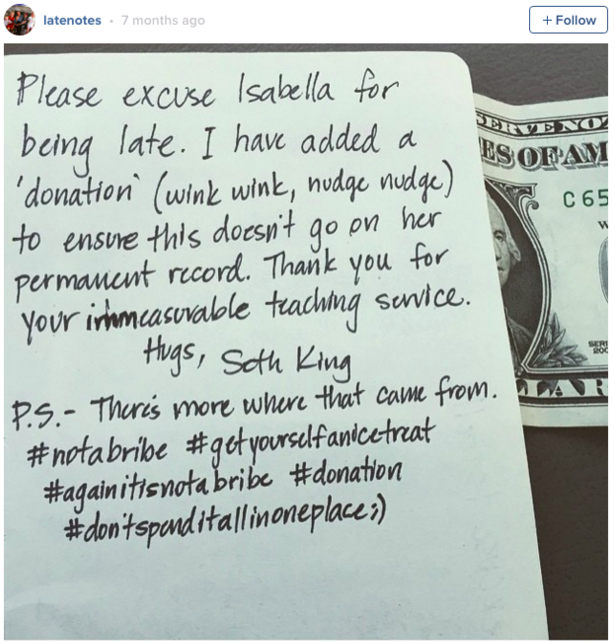 latenotes • 7 months ago
+ Follow
Please excuse Isabella for
being late. I have added a
'donation' (wink wink, nudge nudge)
to ensure this doesn't go on her
permanent record. Thank you for
your immeasurable teaching service.
Hugs, Seth King
P.S.- There's more where that came from.
#notabribe #getyourselfanicetreat
#againitisnotabribe #donation
#don'tspenditallinoneplace;)
ERVE NO
ES OF AM
C 65